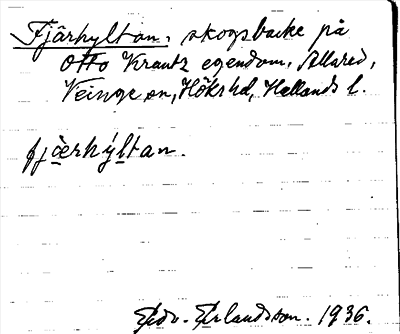 Fjärhyltan, skogsbacke på
Otto Krantz egendom, Allared,
Veinge sn, Höks hd, Hallands l.
fjèrhýltan.
Edv. Erlandsson. 1936.